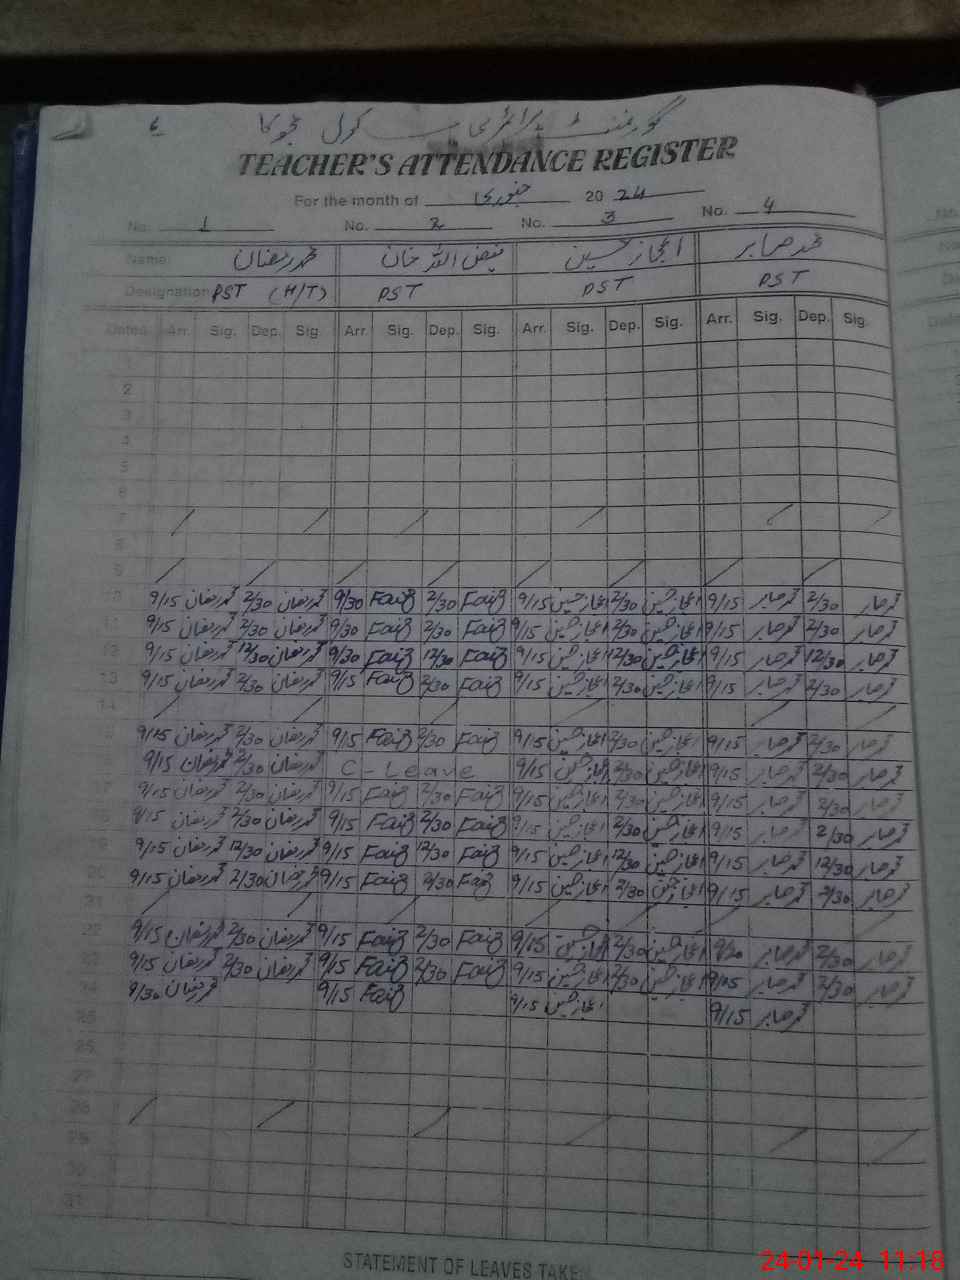 گورنمنٹ پرائمری سکول
TEACHER'S ATTENDANCE REGISTER
For the month of جنوری 2024
No. 1 No. 2 No. 3 No. 4
Name: محمد رمضان فیض اللہ خان اعجاز حسین محمد صابر
Designation PST (H/T) PST PST PST
Dates Arr. Sig. Dep. Sig. Arr. Sig. Dep. Sig. Arr. Sig. Dep. Sig. Arr. Sig. Dep. Sig.
1
2
3
4
5
6
7
8
9
10 9/15 محمد رمضان 2/30 محمد رمضان 9/30 Faiz 2/30 Faiz 9/15 اعجاز حسین 2/30 اعجاز حسین 9/15 محمد صابر 2/30 محمد صابر
11 9/15 محمد رمضان 2/30 محمد رمضان 9/30 Faiz 2/30 Faiz 9/15 اعجاز حسین 2/30 اعجاز حسین 9/15 محمد صابر 2/30 محمد صابر
12 9/15 محمد رمضان 12/30 محمد رمضان 9/30 Faiz 12/30 Faiz 9/15 اعجاز حسین 12/30 اعجاز حسین 9/15 محمد صابر 12/30 محمد صابر
13 9/15 محمد رمضان 2/30 محمد رمضان 9/15 Faiz 2/30 Faiz 9/15 اعجاز حسین 2/30 اعجاز حسین 9/15 محمد صابر 2/30 محمد صابر
14
15 9/15 محمد رمضان 2/30 محمد رمضان 9/15 Faiz 2/30 Faiz 9/15 اعجاز حسین 2/30 اعجاز حسین 9/15 محمد صابر 2/30 محمد صابر
16 9/15 محمد رمضان 2/30 محمد رمضان C-Leave 9/15 اعجاز حسین 2/30 اعجاز حسین 9/15 محمد صابر 2/30 محمد صابر
17 9/15 محمد رمضان 2/30 محمد رمضان 9/15 Faiz 2/30 Faiz 9/15 اعجاز حسین 2/30 اعجاز حسین 9/15 محمد صابر 2/30 محمد صابر
18 9/15 محمد رمضان 2/30 محمد رمضان 9/15 Faiz 2/30 Faiz 9/15 اعجاز حسین 2/30 اعجاز حسین 9/15 محمد صابر 2/30 محمد صابر
19 9/15 محمد رمضان 12/30 محمد رمضان 9/15 Faiz 12/30 Faiz 9/15 اعجاز حسین 12/30 اعجاز حسین 9/15 محمد صابر 12/30 محمد صابر
20 9/15 محمد رمضان 2/30 محمد رمضان 9/15 Faiz 2/30 Faiz 9/15 اعجاز حسین 2/30 اعجاز حسین 9/15 محمد صابر 2/30 محمد صابر
21
22 9/15 محمد رمضان 2/30 محمد رمضان 9/15 Faiz 2/30 Faiz 9/15 اعجاز حسین 2/30 اعجاز حسین محمد صابر 2/30 محمد صابر
23 9/15 محمد رمضان 2/30 محمد رمضان 9/15 Faiz 2/30 Faiz 9/15 اعجاز حسین 2/30 اعجاز حسین محمد صابر 2/30 محمد صابر
24 9/30 محمد رمضان 9/15 Faiz 9/15 اعجاز حسین 9/15 محمد صابر
25
26
27
28
29
30
31
STATEMENT OF LEAVES TAKEN
24-01-24 11:18